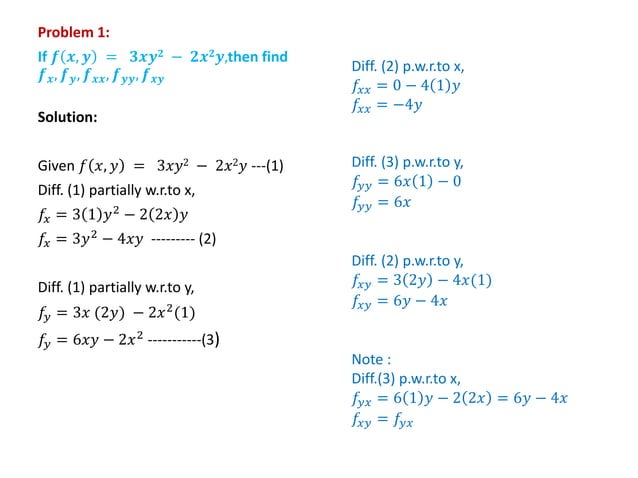 Problem 1:
If 𝒇(𝒙, 𝒚) = 𝟑𝒙𝒚² − 𝟐𝒙²𝒚,then find
𝒇ₓ, 𝒇ᵧ, 𝒇ₓₓ, 𝒇ᵧᵧ, 𝒇ₓᵧ
Solution:
Given f(x, y) = 3xy² − 2x²y ---(1)
Diff. (1) partially w.r.to x,
fₓ = 3(1)y² − 2(2x)y
fₓ = 3y² − 4xy --------- (2)
Diff. (1) partially w.r.to y,
fᵧ = 3x (2y) − 2x²(1)
fᵧ = 6xy − 2x² -----------(3)
Diff. (2) p.w.r.to x,
fₓₓ = 0 − 4(1)y
fₓₓ = −4y
Diff. (3) p.w.r.to y,
fᵧᵧ = 6x(1) − 0
fᵧᵧ = 6x
Diff. (2) p.w.r.to y,
fₓᵧ = 3(2y) − 4x(1)
fₓᵧ = 6y − 4x
Note :
Diff.(3) p.w.r.to x,
fᵧₓ = 6(1)y − 2(2x) = 6y − 4x
fₓᵧ = fᵧₓ